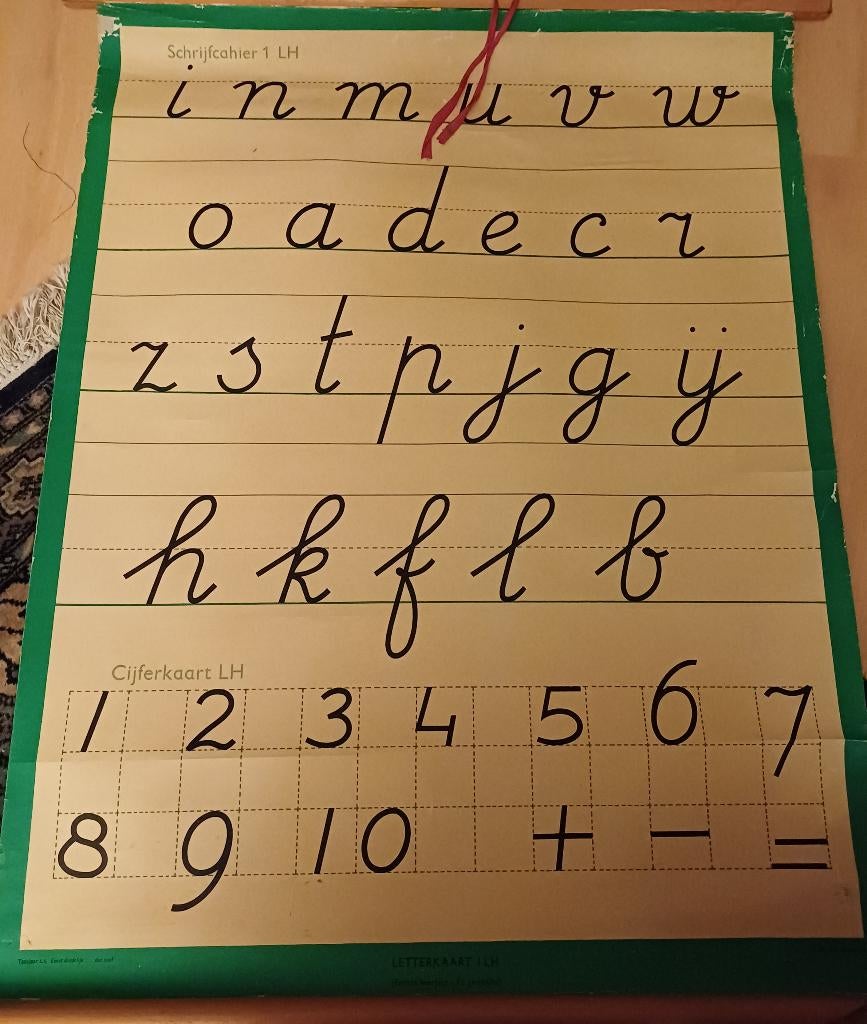 Schrijfcahier 1 LH
i n m u v w
o a d e c r
z s t p j g ij
h k f l b
Cijferkaart LH
1 2 3 4 5 6 7
8 9 10 + − =
LETTERKAART 1 LH